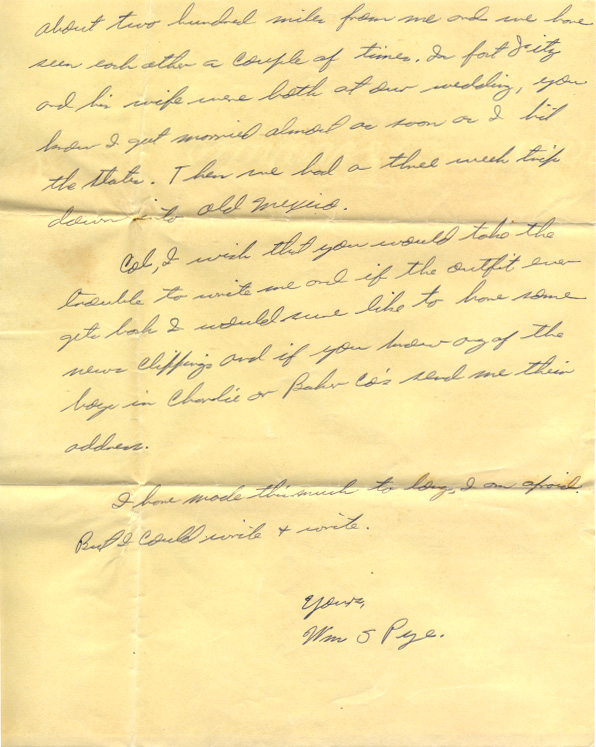 about two hundred miles from me and we have
seen each other a couple of times. In fact
and his wife were both at our wedding, you
know I got married almost as soon as I hit
the States. Then we had a three week trip
down into old Mexico.
Col, I wish that you would take the
trouble to write me and if the outfit ever
gets bak I would sure like to have some
news clippings and if you know any of the
boys in Charlie or Baker Co's send me their
address.
I have made this much to long, I am afraid.
But I could write + write.
Yours,
Wm S Pye.